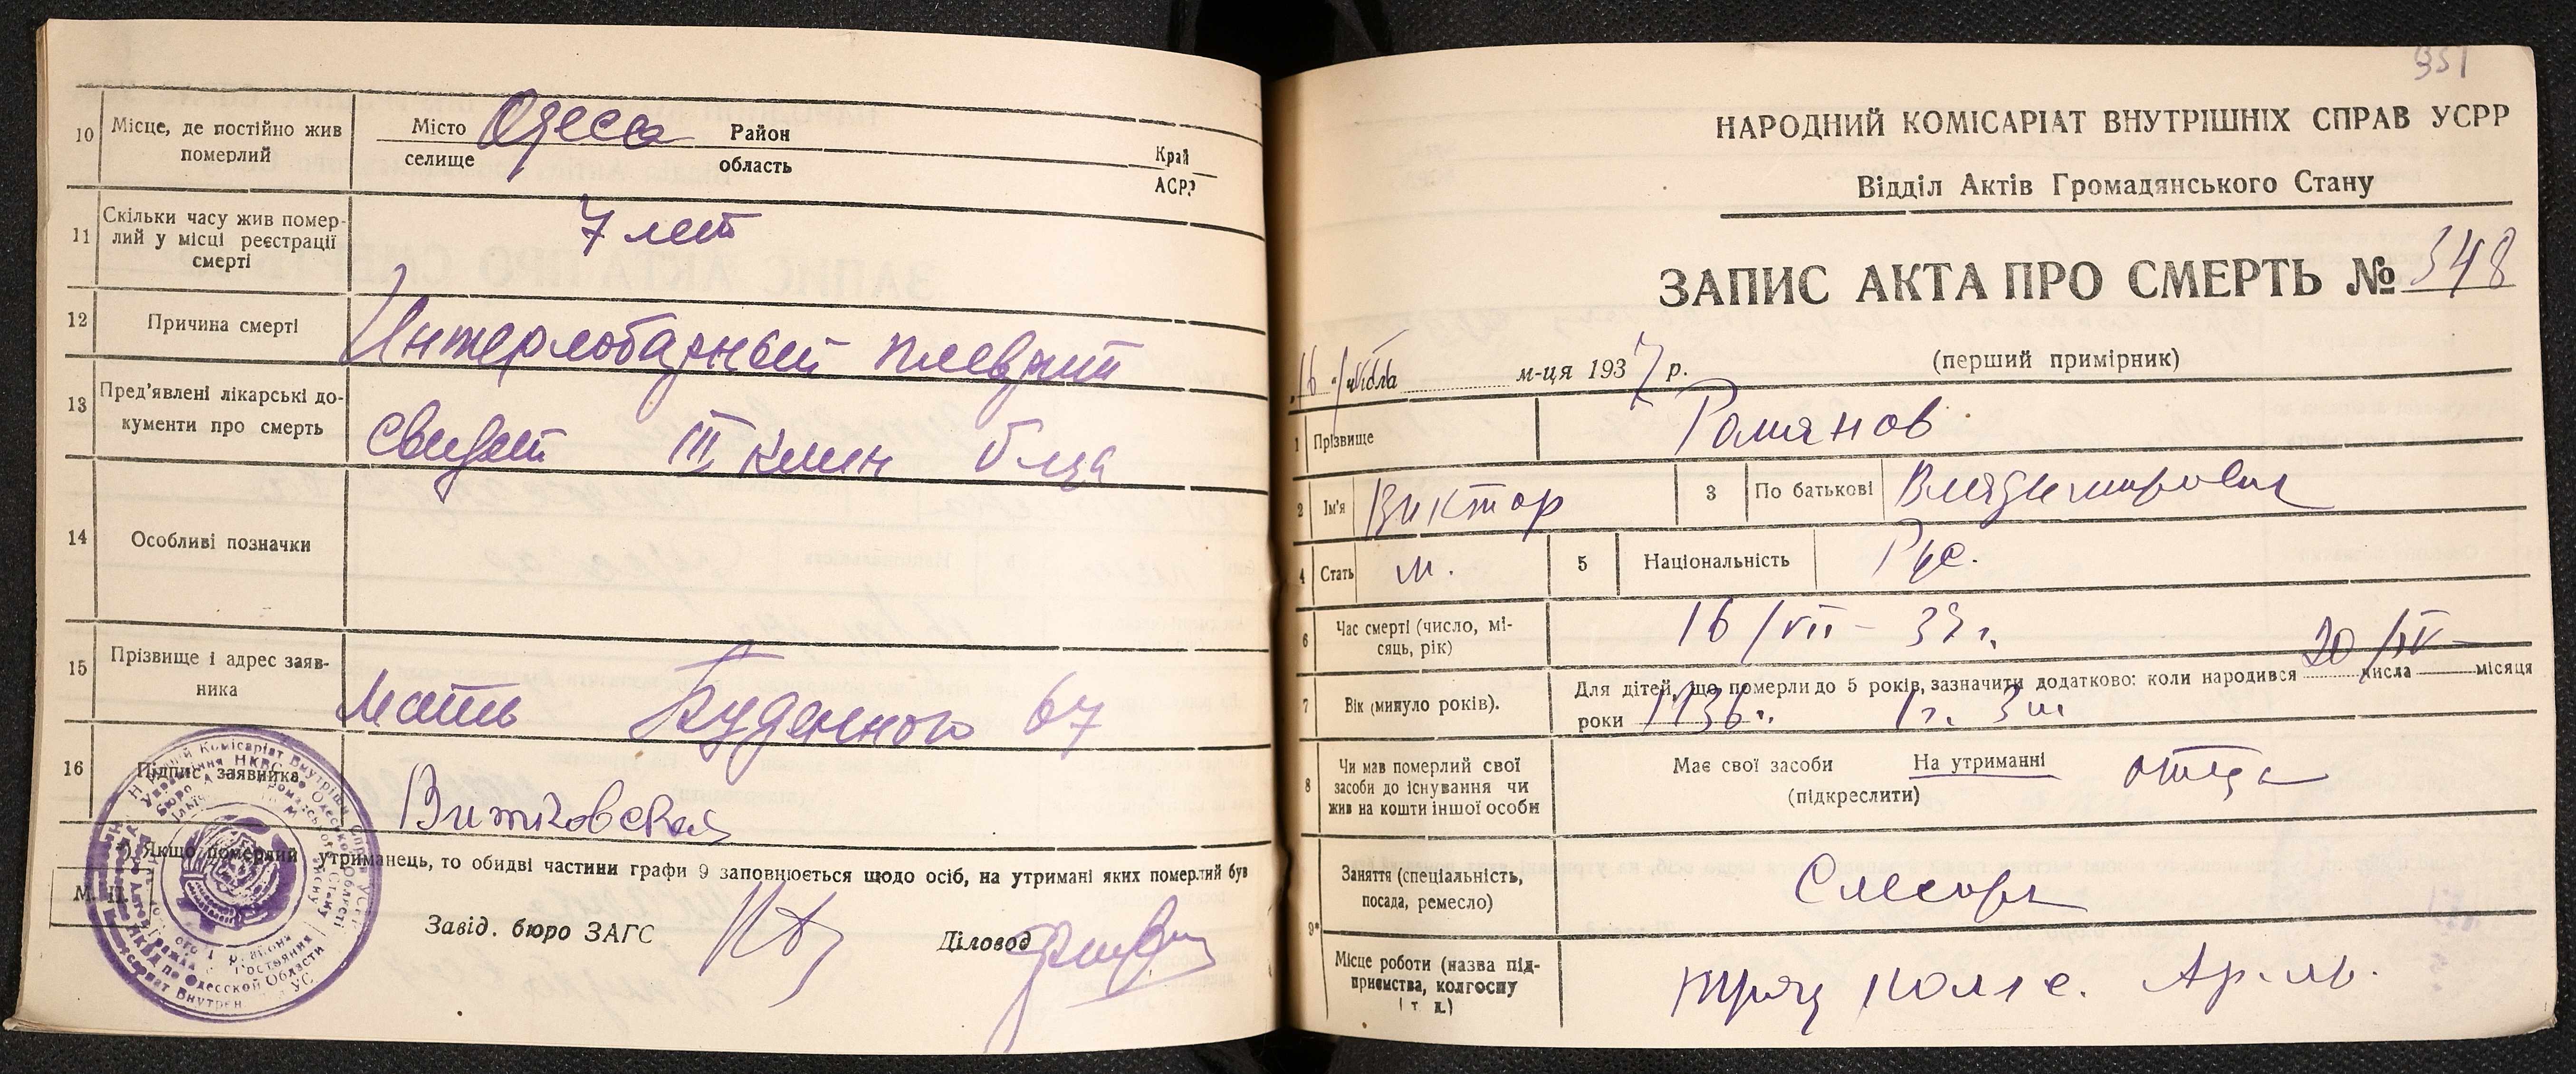 10 Місце, де постійно жив
померлий
Місто Одесса Район
селище область
Край
АСРР
11 Скільки часу жив помер-
лий у місці реєстрації
смерті
7 лет
12 Причина смерті
Интерлобарный плеврит
13 Пред'явлені лікарські до-
кументи про смерть
свидет III клин б-ца
14 Особливі позначки
15 Прізвище і адрес заяв-
ника
Мать Буденного 67
16 Підпис заявника
Витковская
Якщо померлий утриманець, то обидві частини графи 9 заповнюється щодо осіб, на утримані яких померлий був
М. П.
Завід. бюро ЗАГС
Діловод
351
НАРОДНИЙ КОМІСАРІАТ ВНУТРІШНІХ СПРАВ УСРР
Відділ Актів Громадянського Стану
ЗАПИС АКТА ПРО СМЕРТЬ № 348
(перший примірник)
16 числа м-ця 1937 р.
1 Прізвище Романов
2 Ім'я Виктор 3 По батькові Владимирович
4 Стать м. 5 Національність Рус.
6 Час смерті (число, мі-
сяць, рік)
16/VII - 37 г.
7 Вік (минуло років).
Для дітей, що померли до 5 років, зазначити додатково: коли народився 20 числа IV місяця
роки 1936 г. 1 г. 3 м
8 Чи мав померлий свої
засоби до існування чи
жив на кошти іншої особи
Має свої засоби На утриманні отца
(підкреслити)
9* Заняття (спеціальність,
посада, ремесло)
Слесарь
Місце роботи (назва під-
приємства, колгоспу
і т. д.)